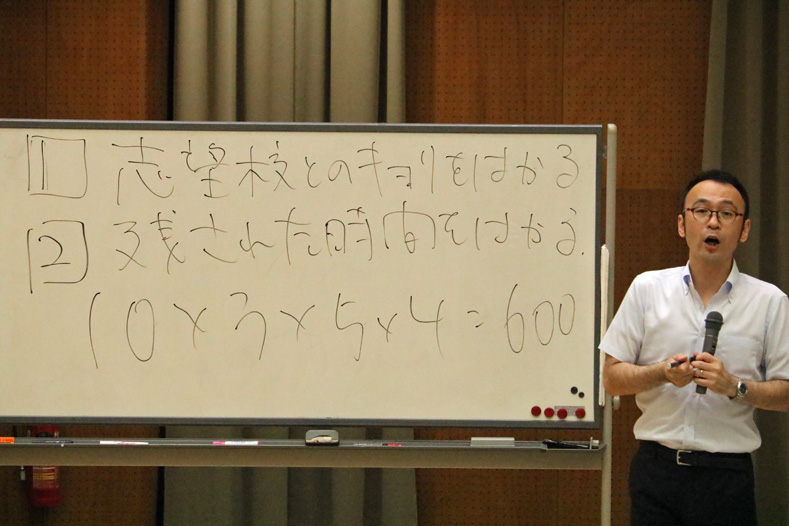 1 志望校とのキョリをはかる
2 残された時間をはかる.
10×3×5×4=600